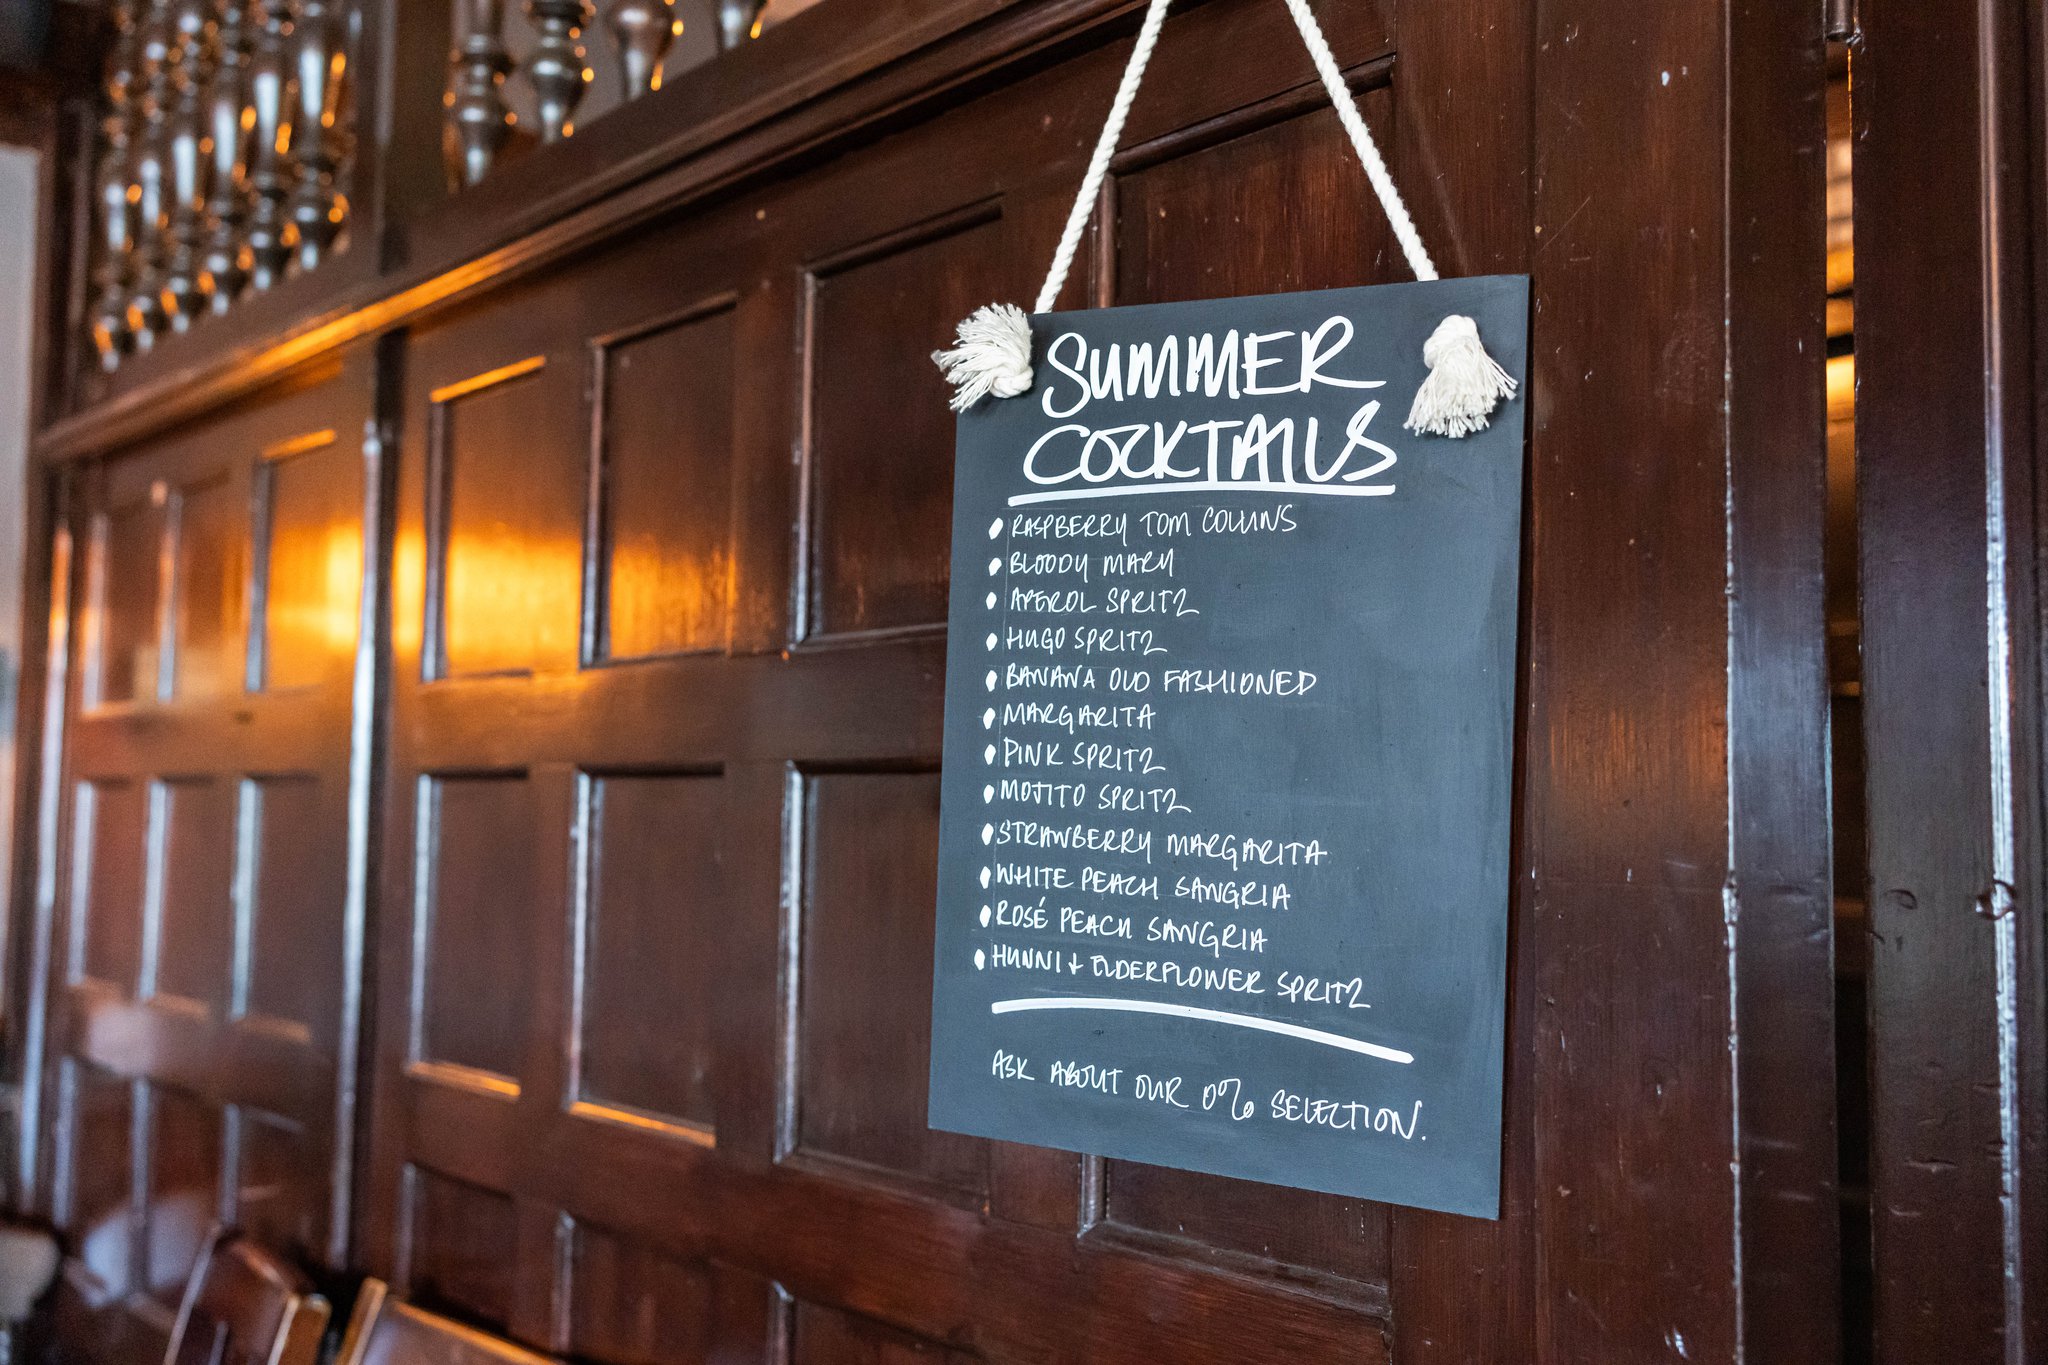 SUMMER
COCKTAILS
RASPBERRY TOM COLLINS
BLOODY MARY
APEROL SPRITZ
HUGO SPRITZ
BANANA OLD FASHIONED
MARGARITA
PINK SPRITZ
MOJITO SPRITZ
STRAWBERRY MARGARITA
WHITE PEACH SANGRIA
ROSÉ PEACH SANGRIA
HUNNI + ELDERFLOWER SPRITZ
ASK ABOUT OUR 0% SELECTION.